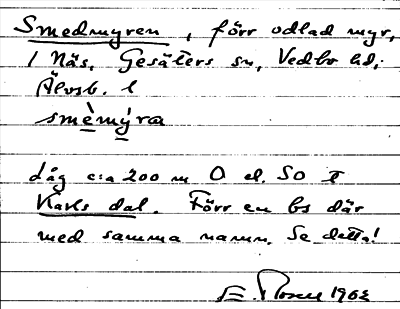 Smedmyren, förr odlad myr,
i Näs, Gesäters sn, Vedbo hd,
Älvsb. l
smèmýra
Låg c:a 200 m O el. SO t
Karls dal. Förr en bs där
med samma namn. Se detta!
E. Rosell 1962